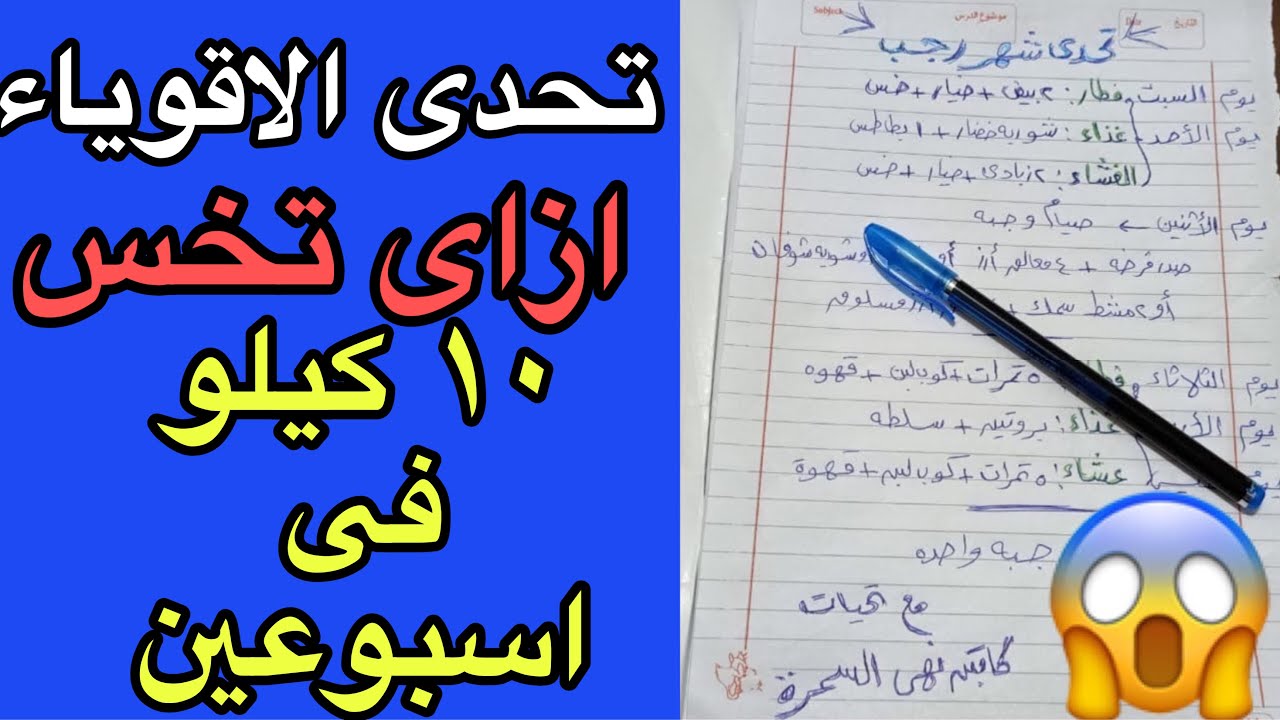 تحدى الاقوياء
ازاى تخس
١٠ كيلو
فى
اسبوعين
Subject
موضوع الدرس
Date
التاريخ
تحدى شهر رجب
يوم السبت فطار: ٢ بيض + خيار + خس
يوم الأحد غذاء: شوربه خضار + ١ بطاطس
العشاء: ٢ زبادى + خيار + خس
يوم الأثنين ← صيام وجبه
صدر فرخه + ٤ معالق أرز شوربه شوفان
أو ٢ مشط سمك +
يوم الثلاثاء ٥ تمرات + كوب لبن + قهوه
يوم غذاء: بروتين + سلطه
عشاء: ٥ تمرات + كوب لبن + قهوة
واحده
مع تحيات
كابتن نهى السمرة